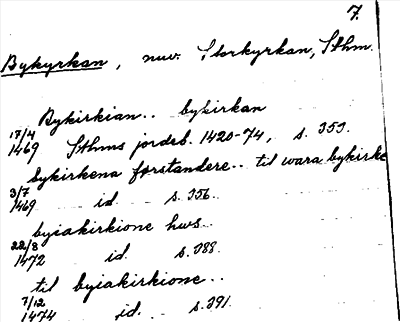 7.
Bykyrkan, nuv. Storkyrkan, Sthm.
Bykirkian.. bykirkan
17/4
1469 Sthms jordeb. 1420-74, s. 353.
bykirkena førstandere.. til wara bykirke
3/7
1469 id s. 356.
byiakirkione hws..
22/3
1472 id. s. 388.
til byiakirkione..
7/12
1474 id. s. 391.